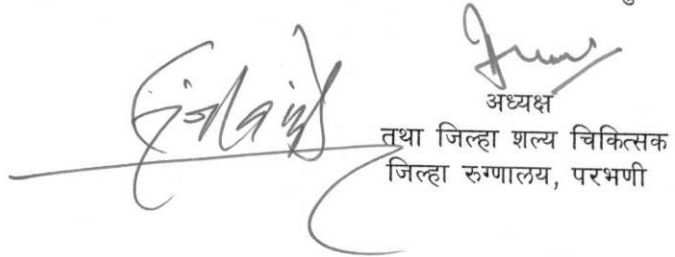 अध्यक्ष
तथा जिल्हा शल्य चिकित्सक
जिल्हा रुग्णालय, परभणी